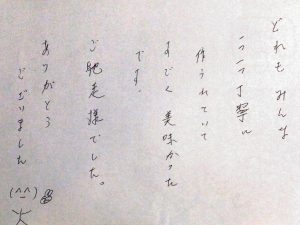 どれも みんな
一つ一つ丁寧に
作られていて
すごく 美味かった
です。
ご馳走様でした。
ありがとう
ございました
(^^)